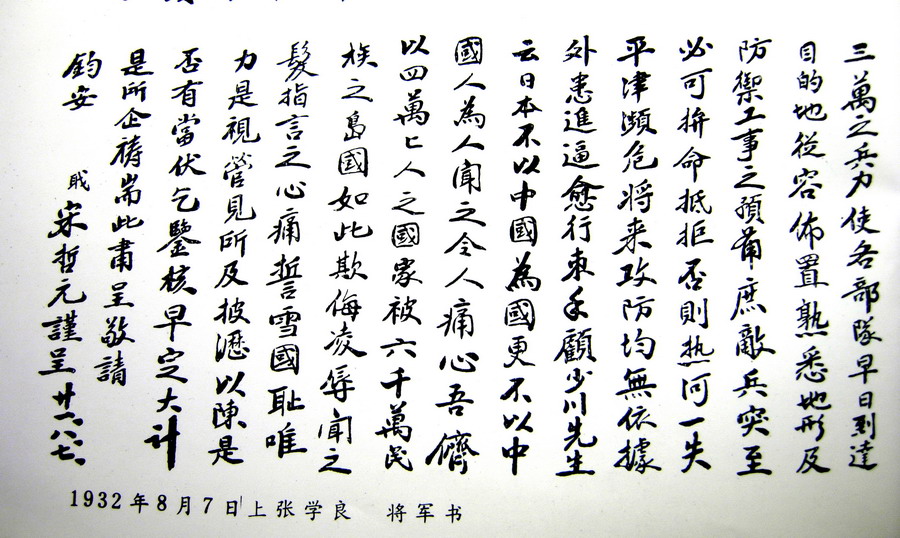 三萬之兵力使各部隊早日到達
目的地從容佈置熟悉地形及
防禦工事之預備庶敵兵突至
必可拚命抵拒否則热河一失
平津濒危将来攻防均無依據
外患進逼愈行束手顧少川先生
云日本不以中國為國更不以中
國人為人聞之令人痛心吾儕
以四萬七人之國家被六千萬民
族之島國如此欺侮凌辱聞之
髮指言之心痛誓雪國耻唯
力是視管見所及披瀝以陳是
否有當伏乞鑒核早定大计
是所企祷耑此肅呈敬請
鈞安
職宋哲元謹呈廿一、八、七、
1932年8月7日上张学良 将军书